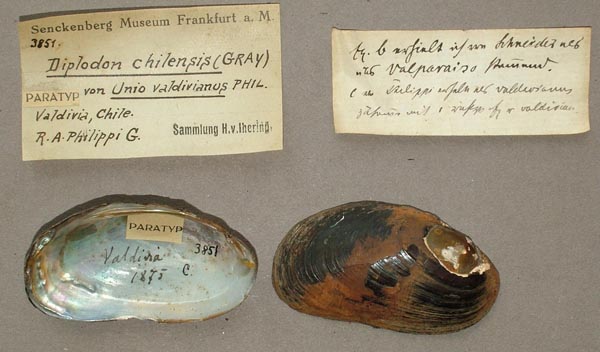 Senckenberg Museum Frankfurt a. M.
3851.
Diplodon chilensis (GRAY)
PARATYP von Unio valdivianus PHIL.
Valdivia, Chile.
R.A. Philippi G. Sammlung H.v.Ihering.
b erhielt ich von Schneider als
Valparaiso stammend.
c Philippi valdivianus
valdivian
PARATYP
Valdivia 3851
1875 C.